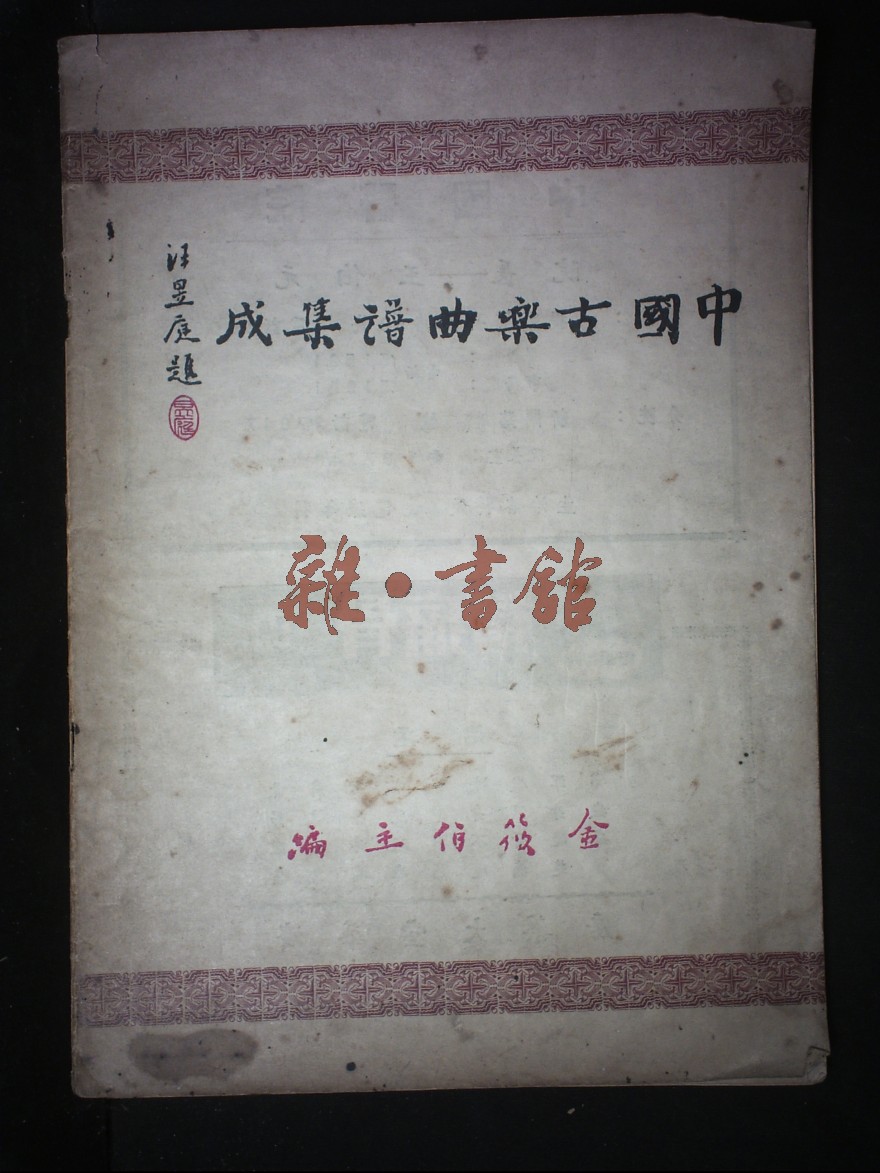 中國古樂曲譜集成
汪昱庭題
昱庭
雜·書館
金筱伯主編